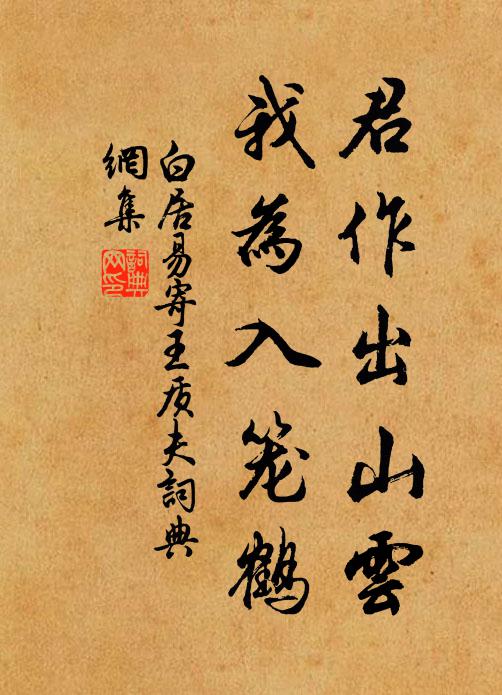 君作出山雲
我為入笼鶴
白居易寄王质夫詞典
網集
詞典
网印